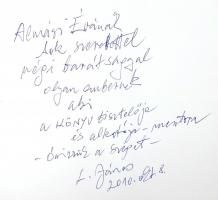 Almási Évának
sok szeretettel
régi barátsággal
olyan embernek
aki
a KÖNYV tisztelője
és alkotója - mentora
- őrizzük a szépet -
L. János
2010. okt. 8.